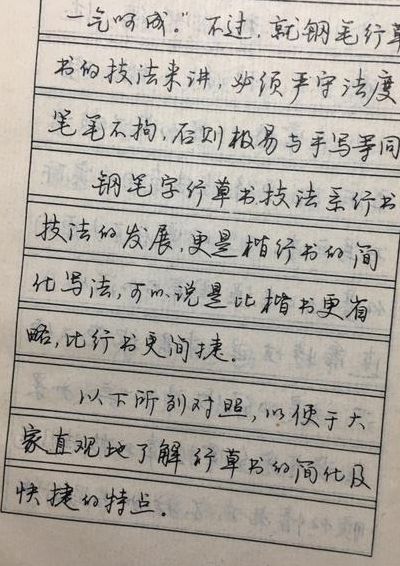 一气呵成。"不过,就钢笔行草
书的技法来讲,必须严守法度
笔笔不拘,否则极易与手写等同
钢笔字行草书技法系行书
技法的发展,更是楷行书的简
化写法,可以说是比楷书更省
略,比行书更简捷.
以下所列对照,以便于大
家直观地了解行草书的简化及
快捷的特点.